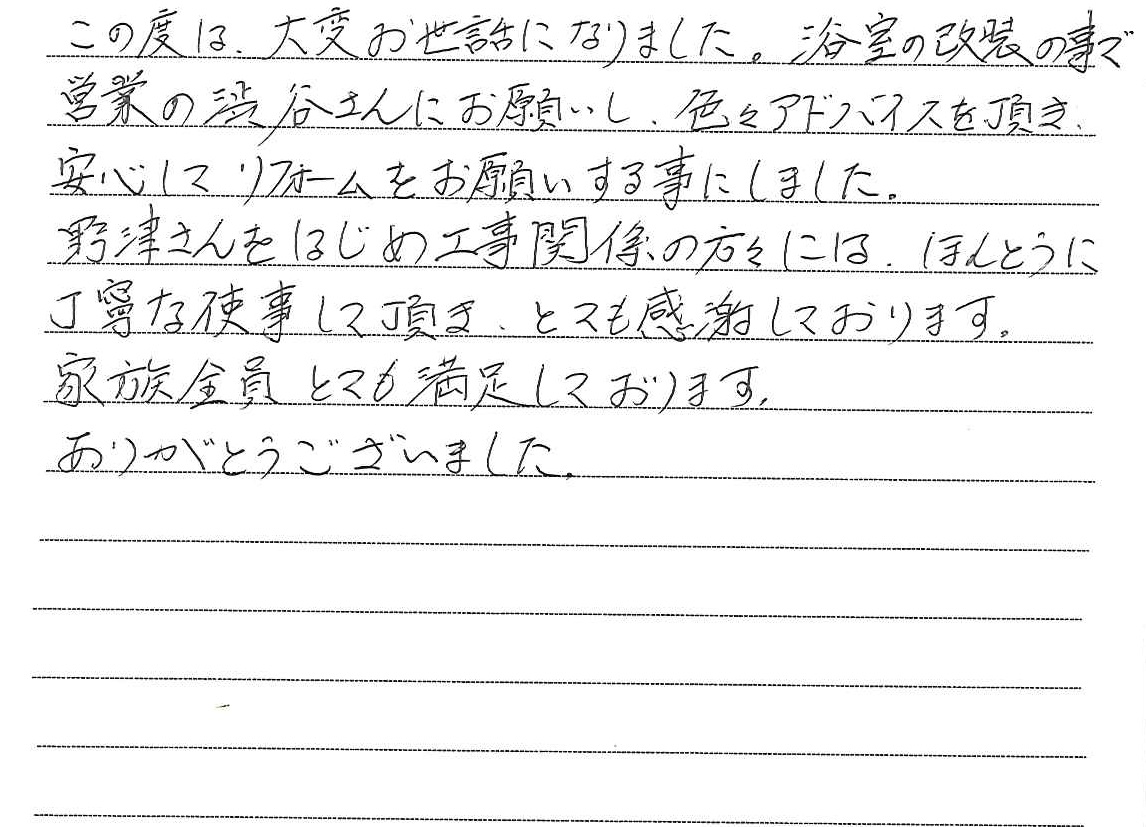 この度は、大変お世話になりました。浴室の改装の事で
営業の渋谷さんにお願いし、色々アドバイスを頂き、
安心してリフォームをお願いする事にしました。
野津さんをはじめ工事関係の方々には、ほんとうに
丁寧な使事して頂き、とても感激しております。
家族全員とても満足しております。
ありがとうございました。